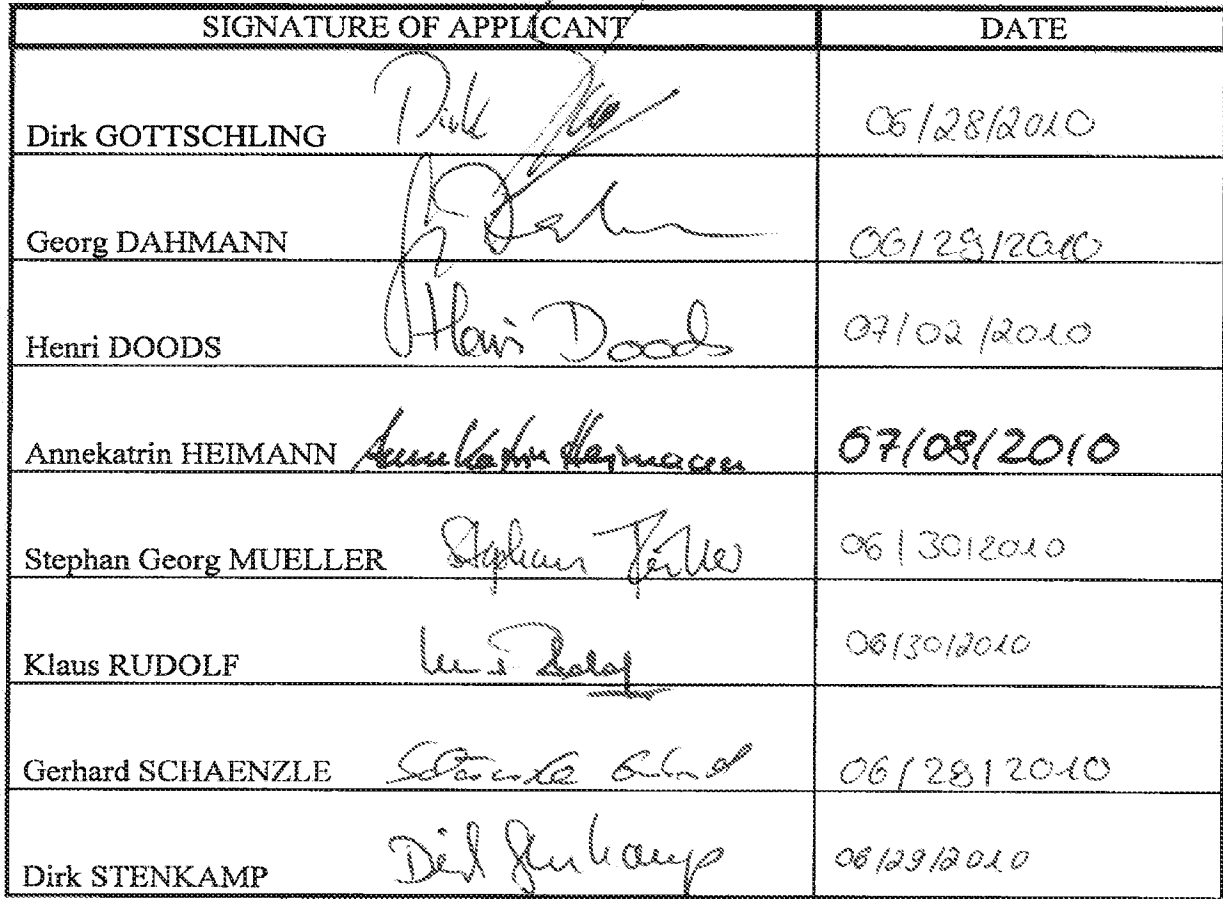 SIGNATURE OF APPLICANT DATE
Dirk GOTTSCHLING Dirk 06/28/2010
Georg DAHMANN 06/29/2010
Henri DOODS Henri Doods 07/02/2010
Annekatrin HEIMANN Annekatrin Heimann 07/08/2010
Stephan Georg MUELLER Stephan Müller 06/30/2010
Klaus RUDOLF Rudolf 06/30/2010
Gerhard SCHAENZLE 06/28/2010
Dirk STENKAMP Dirk Stenkamp 06/29/2010